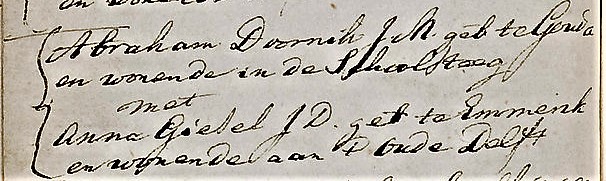 en wonende
Abraham Dornih J M. geb te Gouda
en wonende in de Schoolsteeg
met
Anna Giesel J D. geb te Emmenk
en wonende aan t oude Delft